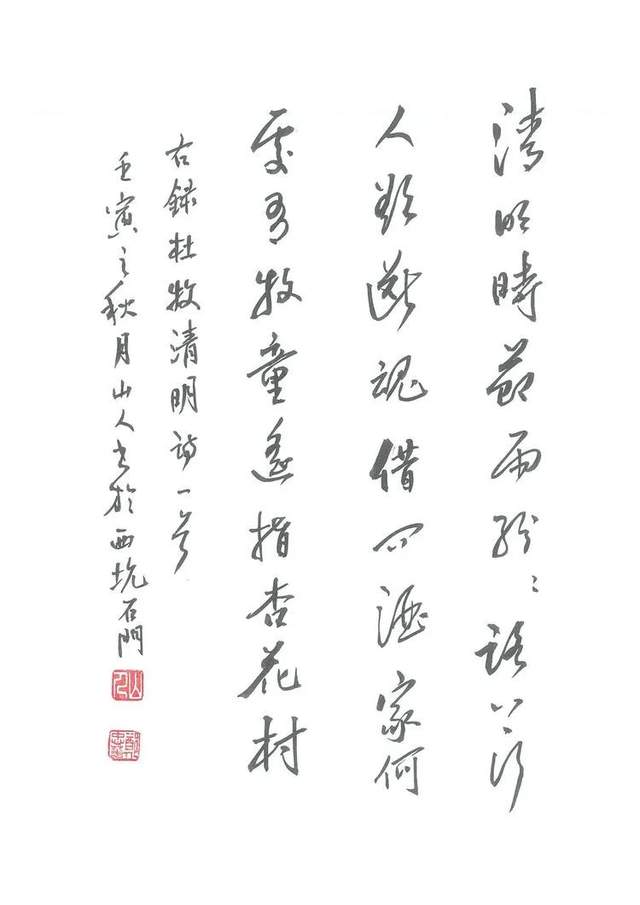 清明時節雨紛々路上行
人欲斷魂借问酒家何
處有牧童遙指杏花村
右録杜牧清明詩一首
壬寅之秋月山人书於西坑石門
山人